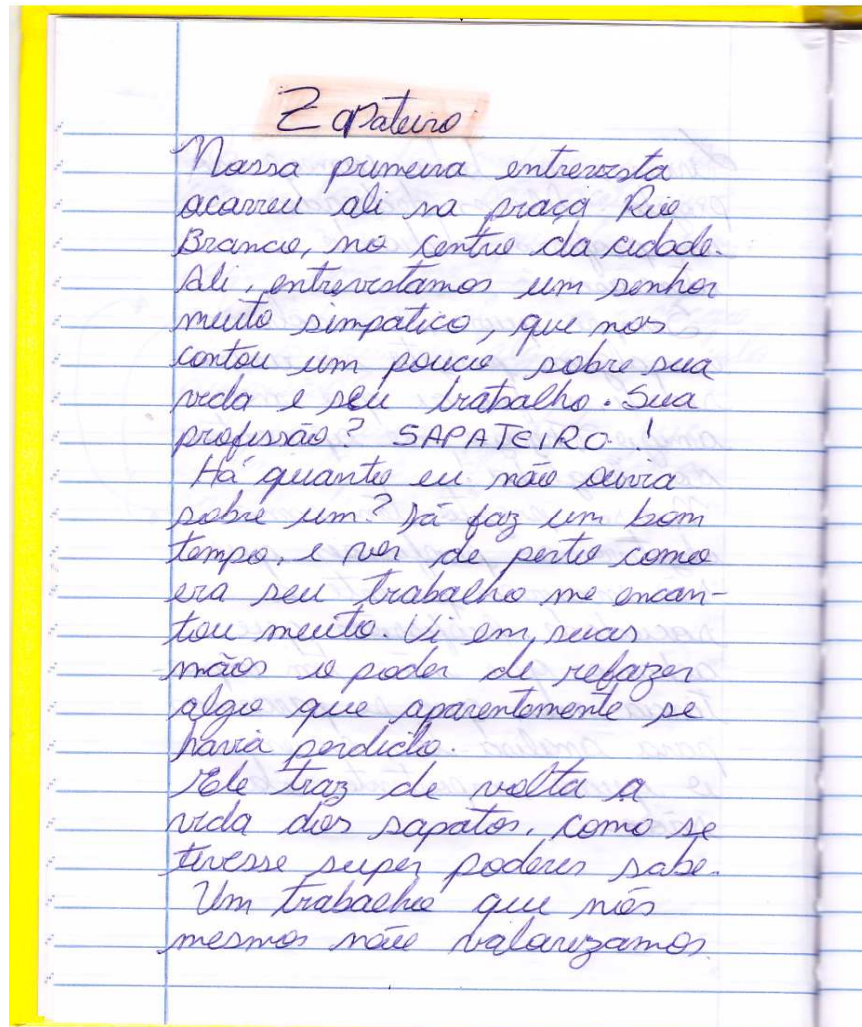 Zapateiro
Nossa primeira entrevista
ocorreu ali na praça Rio
Branco, no centro da cidade.
Ali, entrevistamos um senhor
muito simpatico, que nos
contou um pouco sobre sua
vida e seu trabalho. Sua
profissão? SAPATEIRO!
Há quanto eu não ouvia
sobre um? Já faz um bom
tempo, e ver de perto como
era seu trabalho me encan-
tou muito. Vi em suas
mãos o poder de refazer
algo que aparentemente se
havia perdido.
Ele traz de volta a
vida dos sapatos, como se
tivesse super poderes sabe.
Um trabalho que nós
mesmos não valorizamos.